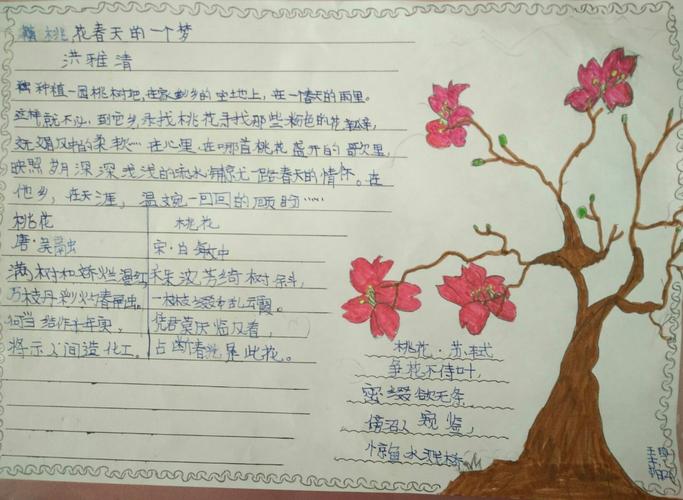 桃花春天的一个梦
洪雅清
种植一园桃树吧,在家乡的空地上,在一个春天的雨里。
这样就不必到它乡寻找桃花寻找那些粉色的花瓣来,
妩媚风中的柔软……在心里,在哪首桃花盛开的歌里,
映照岁月深深浅浅的流水铺就一路春天的情怀。在
他乡,在天涯,温婉一回回的顾盼……
桃花
唐·吴融
满树和娇烂漫红
万枝丹彩灼春融。
何当结作千年实,
将示人间造化工。
桃花
宋·白敏中
朵 芳绮树斜,
一枝枝缀乱云霞。
凭君莫厌临风看,
占断春光是此花。
桃花·苏轼
争花不待叶,
密缀欲无条
傍沼人窥鉴,
惊鱼水溅桥